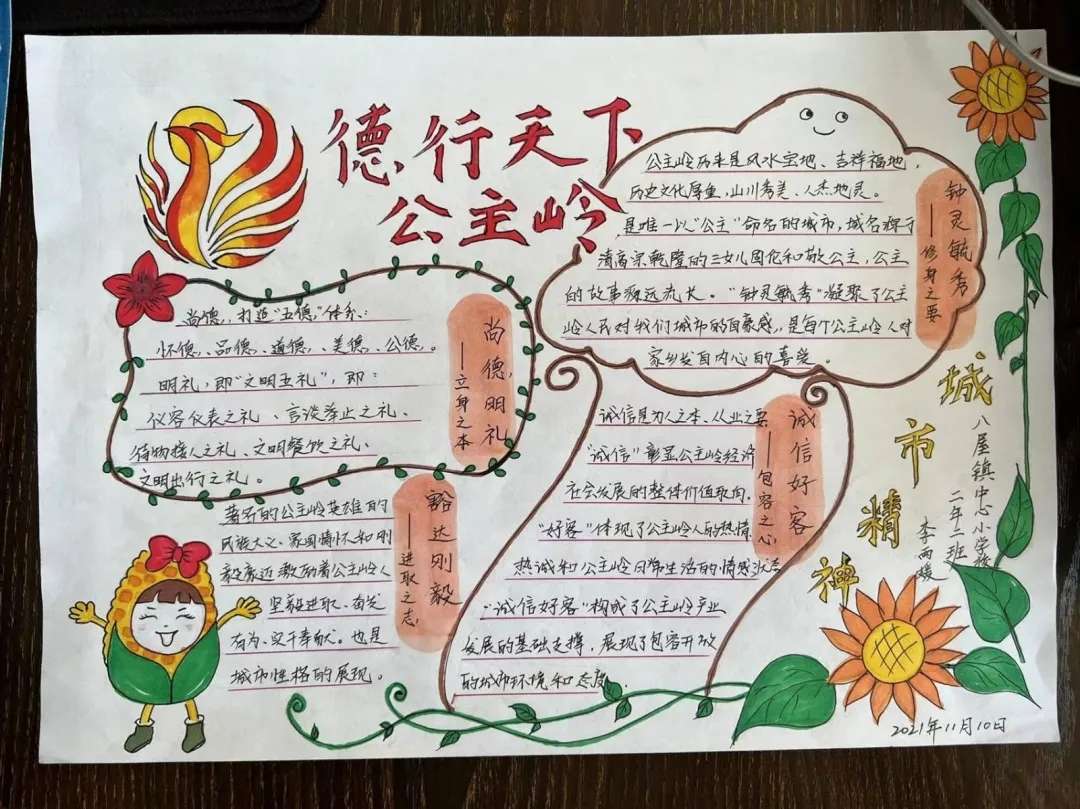 德行天下
公主岭
公主岭历来是风水宝地、吉祥福地，
历史文化厚重，山川秀美、人杰地灵。
是唯一以“公主”命名的城市，城名源于
清高宗乾隆的三女儿固伦和敬公主，公主
的故事源远流长。“钟灵毓秀”凝聚了公主
岭人民对我们城市的自豪感，是每个公主岭人对
家乡发自内心的喜爱。
钟灵毓秀
——修身之要
尚德，打造“五德”体系：
怀德、品德、道德、美德、公德。
明礼，即“文明五礼”，即：
仪容仪表之礼、言谈举止之礼、
待物接人之礼、文明餐饮之礼、
文明出行之礼。
尚德明礼
——立身之本
诚信是为人之本、从业之要
“诚信”彰显公主岭经济
社会发展的整体价值取向。
“好客”体现了公主岭人的热情
热诚和公主岭日常生活的情感状态
“诚信好客”构成了公主岭产业
发展的基础支撑，展现了包容开放
的城市环境和态度。
诚信好客
——包容之心
著名的公主岭英雄的
民族大义、家国情怀如刚
毅豪迈激励着公主岭人
坚毅进取、奋发
有为、实干奉献。也是
城市性格的展现。
豁达刚毅
——进取之志
城市精神
八屋镇中心小学校
二年二班
李雨
2021年11月10日